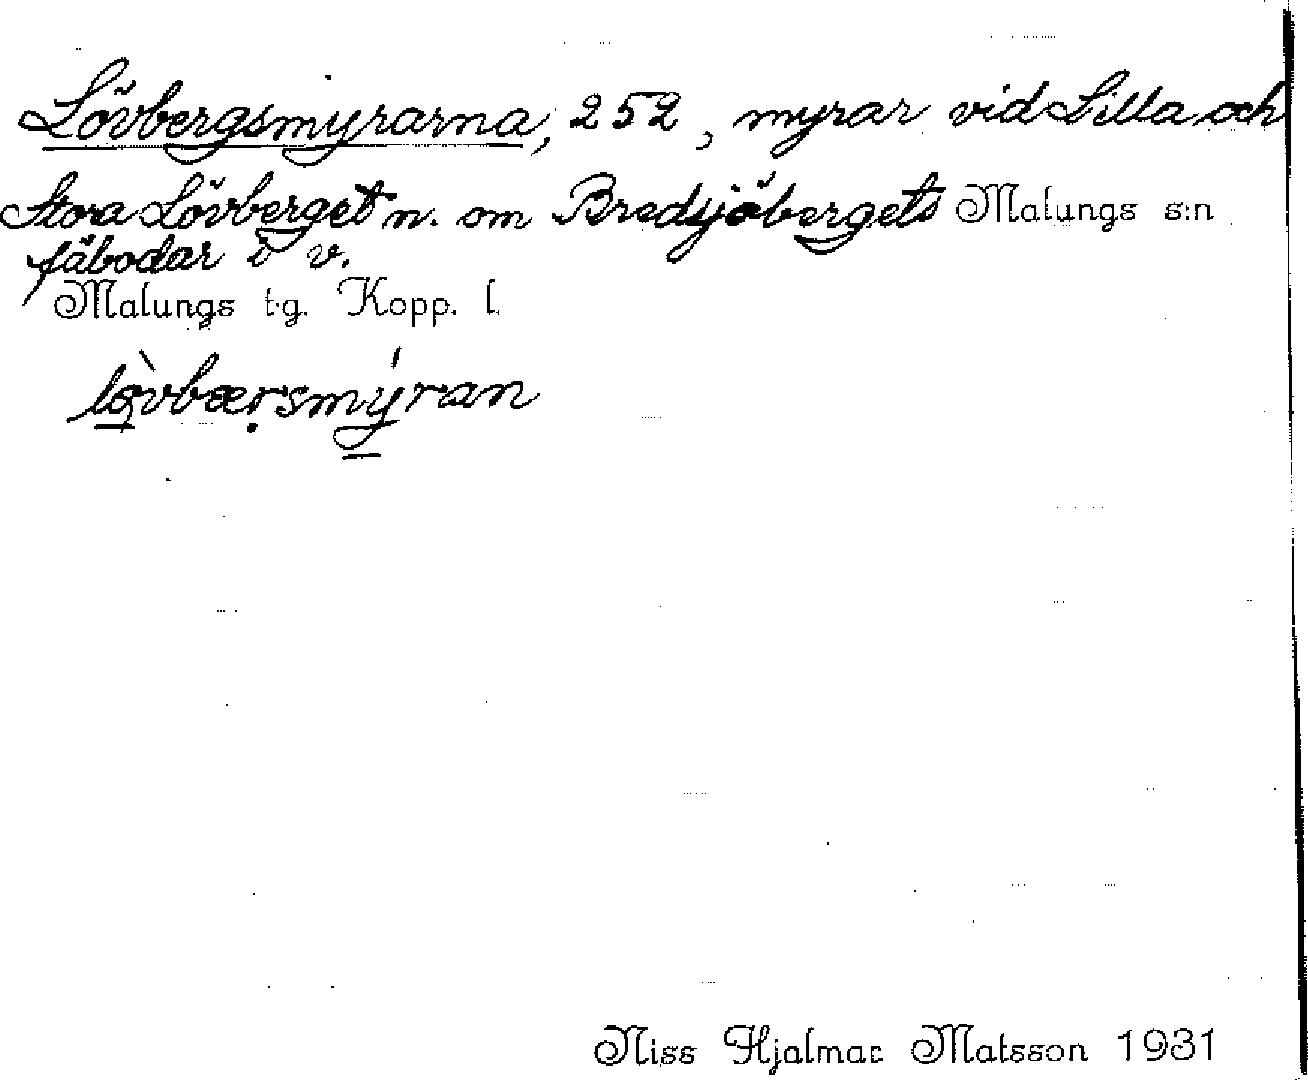 Lövbergsmyrarna, 252, myrar vid Lilla och
Stora Lövberget n. om Bredsjöbergets Malungs s:n
fäbodar i v.
Malungs t.g. Kopp. l.
lo̲vbærsmyran
Niss Hjalmar Matsson 1931